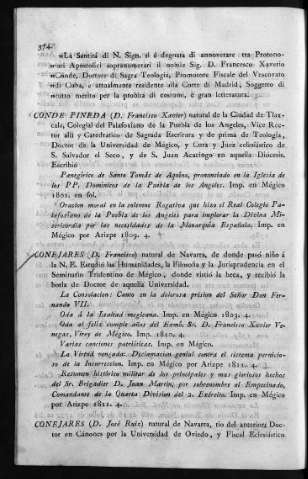 374
„La Santità di N. Sign. si è degnata di annoverare tra Protono-
„tari Apostolici soprannumerari il nobile Sig. D. Francesco Xaverio
„Conde, Dottore di Sagra Teologia, Promotore Fiscale del Vescovato
„di Cuba, e attualmente residente alla Corte di Madrid, Soggetto di
„molto merito per la probità di costume, è gran letteratura.
CONDE PINEDA (D. Francisco Xavier) natural de la Ciudad de Tlax-
cala, Colegial del Palafoxiano de la Puebla de los Angeles, Vice Rec-
tor allí y Catedratico de Sagrada Escritura y de prima de Teologia,
Doctor de la Universidad de Mégico, y Cura y Juez eclesiástico de
S. Salvador el Seco, y de S. Juan Acatzingo en aquella Diócesis.
Escribió
Panegirico de Santo Tomás de Aquino, pronunciado en la Iglesia de
los PP. Dominicos de la Puebla de los Angeles. Imp. en Mégico
1801. en fol.
Oracion moral en la solemne Rogativa que hizo el Real Colegio Pa-
lafoxiano de la Puebla de los Angeles para implorar la Divina Mi-
sericordia por las necesidades de la Monarquía Española. Imp. en
Mégico por Arizpe 1809. 4.
CONEJARES (D. Francisco) natural de Navarra, de donde pasó niño á
la N. E. Estudió las Humanidades, la Filosofia y la Jurisprudencia en el
Seminario Tridentino de Mégico, donde vistió la beca, y recibió la
borla de Doctor de aquella Universidad.
La Consolacion: Canto en la dolorosa prision del Señor Don Fer-
nando VII.
Oda á la Lealtad megicana. Imp. en Mégico 1809. 4.
Oda al feliz cumple años del Exmô. Sr. D. Francisco Xavier Ve-
negas, Virey de Mégico. Imp. 1810. 4.
Varias canciones patrióticas. Imp. en Mégico.
La Virtud vengada: Declamacion genial contra el sistema pernicio-
so de la Insurreccion. Imp. en Mégico por Arizpe 1811. 4.
Resumen histórico militar de los principales y mas gloriosos hechos
del Sr. Brigadier D. Juan Martin, por sobrenombre el Empecinado,
Comandante de la Quarta Division del 2. Exército. Imp. en Mégico
por Arizpe 1811. 4.
CONEJARES (D. José Ruiz) natural de Navarra, tio del anterior, Doc-
tor en Cánones por la Universidad de Oviedo, y Fiscal Eclesiástico